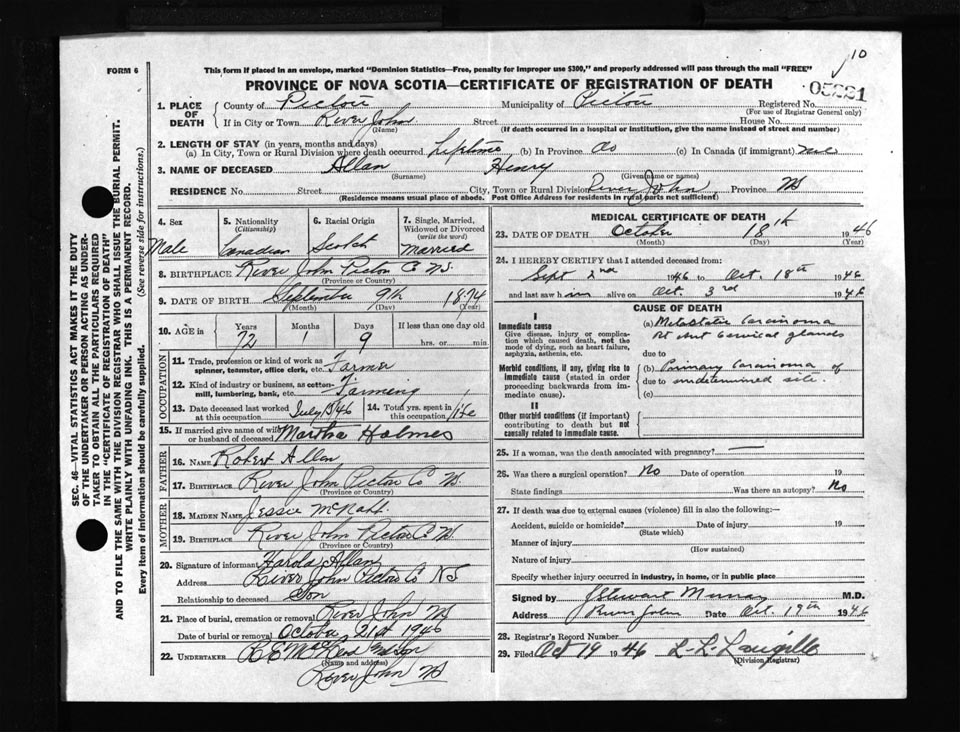 10
FORM 6
This form if placed in an envelope, marked "Dominion Statistics—Free, penalty for improper use $300," and properly addressed will pass through the mail "FREE"
PROVINCE OF NOVA SCOTIA—CERTIFICATE OF REGISTRATION OF DEATH
1. PLACE OF DEATH
County of Pictou Municipality of Pictou Registered No.
(For use of Registrar General only)
If in City or Town River John Street House No.
(Name) (If death occurred in a hospital or institution, give the name instead of street and number)
2. LENGTH OF STAY (in years, months and days)
(a) In City, Town or Rural Division where death occurred Lifetime (b) In Province do (c) In Canada (if immigrant)
3. NAME OF DECEASED Allan Henry
(Surname) (Given name or names)
RESIDENCE No. Street City, Town or Rural Division River John Province NS
(Residence means usual place of abode. Post Office Address for residents in rural parts not sufficient)
4. Sex Male
5. Nationality (Citizenship) Canadian
6. Racial Origin Scotch
7. Single, Married, Widowed or Divorced (write the word) Married
8. BIRTHPLACE River John Pictou Co NS.
(Province or Country)
9. DATE OF BIRTH September 9th 1874
(Month) (Day) (Year)
10. AGE in Years 72 Months 1 Days 9 If less than one day old hrs. or min.
OCCUPATION
11. Trade, profession or kind of work as spinner, teamster, office clerk, etc. Farmer
12. Kind of industry or business, as cotton-mill, lumbering, bank, etc. Farming
13. Date deceased last worked at this occupation July 1946 14. Total yrs. spent in this occupation life
15. If married give name of wife or husband of deceased Martha Holmes
FATHER
16. NAME Robert Allan
17. BIRTHPLACE River John Pictou Co NS.
(Province or Country)
MOTHER
18. MAIDEN NAME Jessie McNabb
19. BIRTHPLACE River John Pictou Co NS
(Province or Country)
20. Signature of informant Harold Allan
Address River John Pictou Co NS
Relationship to deceased Son
21. Place of burial, cremation or removal River John NS
Date of burial or removal October 21st 1946
22. UNDERTAKER
(Name and address)
River John NS
MEDICAL CERTIFICATE OF DEATH
23. DATE OF DEATH October 18th 1946
(Month) (Day) (Year)
24. I HEREBY CERTIFY that I attended deceased from:
Sept 2nd 1946 to Oct. 18th 1946
and last saw him alive on Oct. 3rd 1946
CAUSE OF DEATH
I
Immediate cause
Give disease, injury or complication which caused death, not the mode of dying, such as heart failure, asphyxia, asthenia, etc.
(a) Metastatic Carcinoma
Rt Ant Cervical glands
due to
Morbid conditions, if any, giving rise to immediate cause (stated in order proceeding backwards from immediate cause).
(b) Primary Carcinoma of
due to undetermined site.
(c)
II
Other morbid conditions (if important) contributing to death but not causally related to immediate cause.
25. If a woman, was the death associated with pregnancy? —
26. Was there a surgical operation? No Date of operation 19
State findings Was there an autopsy? No
27. If death was due to external causes (violence) fill in also the following:—
Accident, suicide or homicide? Date of injury 19
(State which)
Manner of injury
(How sustained)
Nature of injury
Specify whether injury occurred in industry, in home, or in public place
Signed by J Stewart Murray M.D.
Address River John Date Oct. 19th 1946
28. Registrar's Record Number
29. Filed Oct 19 1946 L. L. Langille
(Division Registrar)
SEC. 46—VITAL STATISTICS ACT MAKES IT THE DUTY
OF THE UNDERTAKER OR PERSON ACTING AS UNDER-
TAKER TO OBTAIN ALL THE PARTICULARS REQUIRED
IN THE "CERTIFICATE OF REGISTRATION OF DEATH"
AND TO FILE THE SAME WITH THE DIVISION REGISTRAR WHO SHALL ISSUE THE BURIAL PERMIT.
WRITE PLAINLY WITH UNFADING INK. THIS IS A PERMANENT RECORD.
Every item of information should be carefully supplied. (See reverse side for instructions.)